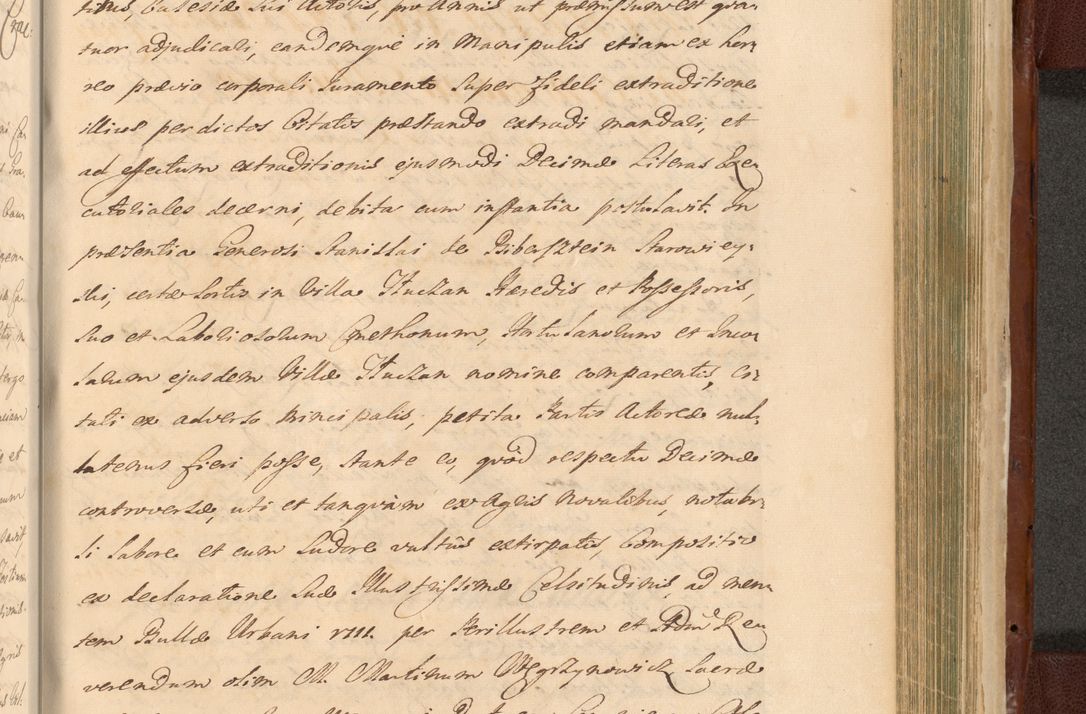 tuor adjudicari, eandemque in Manipulis etiam ex hor¬
reo prævio corporali Juramento super fideli extraditione
illius per dictos Citatos præstando extradi mandari, et
ad effectum extraditionis ejusmodi Decimæ Literas Exe¬
cutoriales decerni, debita cum instantia postulavit. In
præsentia Generosi Stanislai de Bibersztein Starowiey¬
ski, certæ sortis in Villa Huczan Heredis et Possessoris,
suo et Laboriosorum Cmethonum, Hortulanorum et Inco¬
larum ejusdem Villæ Huczan nomine comparentis, Ci¬
tati ex adverso Principalis, petita Partis Actoreæ nul¬
latenus fieri posse, stante eo, quod respectu Decimæ
controversæ, uti et tanquam ex Agris Novalibus, notabi¬
li labore et cum sudore vultus extirpatis, Compositio
ex declaratione Suæ Illustrissimæ Celsitudinis, ad men¬
tem Bullæ Urbani VIII. per Perillustrem et Adm̃ Re
verendum olim M. Martinum Węgrzynowicz Sacræ